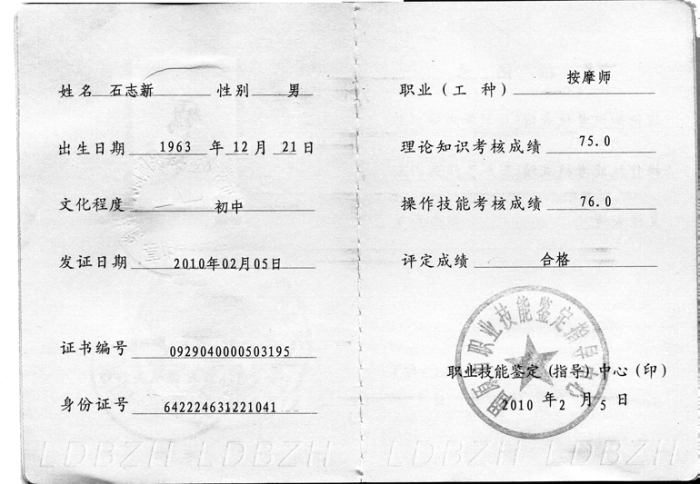 姓名 石志新 性别 男
出生日期 1963 年 12 月 21 日
文化程度 初中
发证日期 2010年02月05日
证书编号 0929040000503195
身份证号 642224631221041
职业（工 种） 按摩师
理论知识考核成绩 75.0
操作技能考核成绩 76.0
评定成绩 合格
职业技能鉴定指导中心
职业技能鉴定（指导）中心（印）
2010 年 2 月 5 日
LDBZH LDBZH LDBZH LDBZH